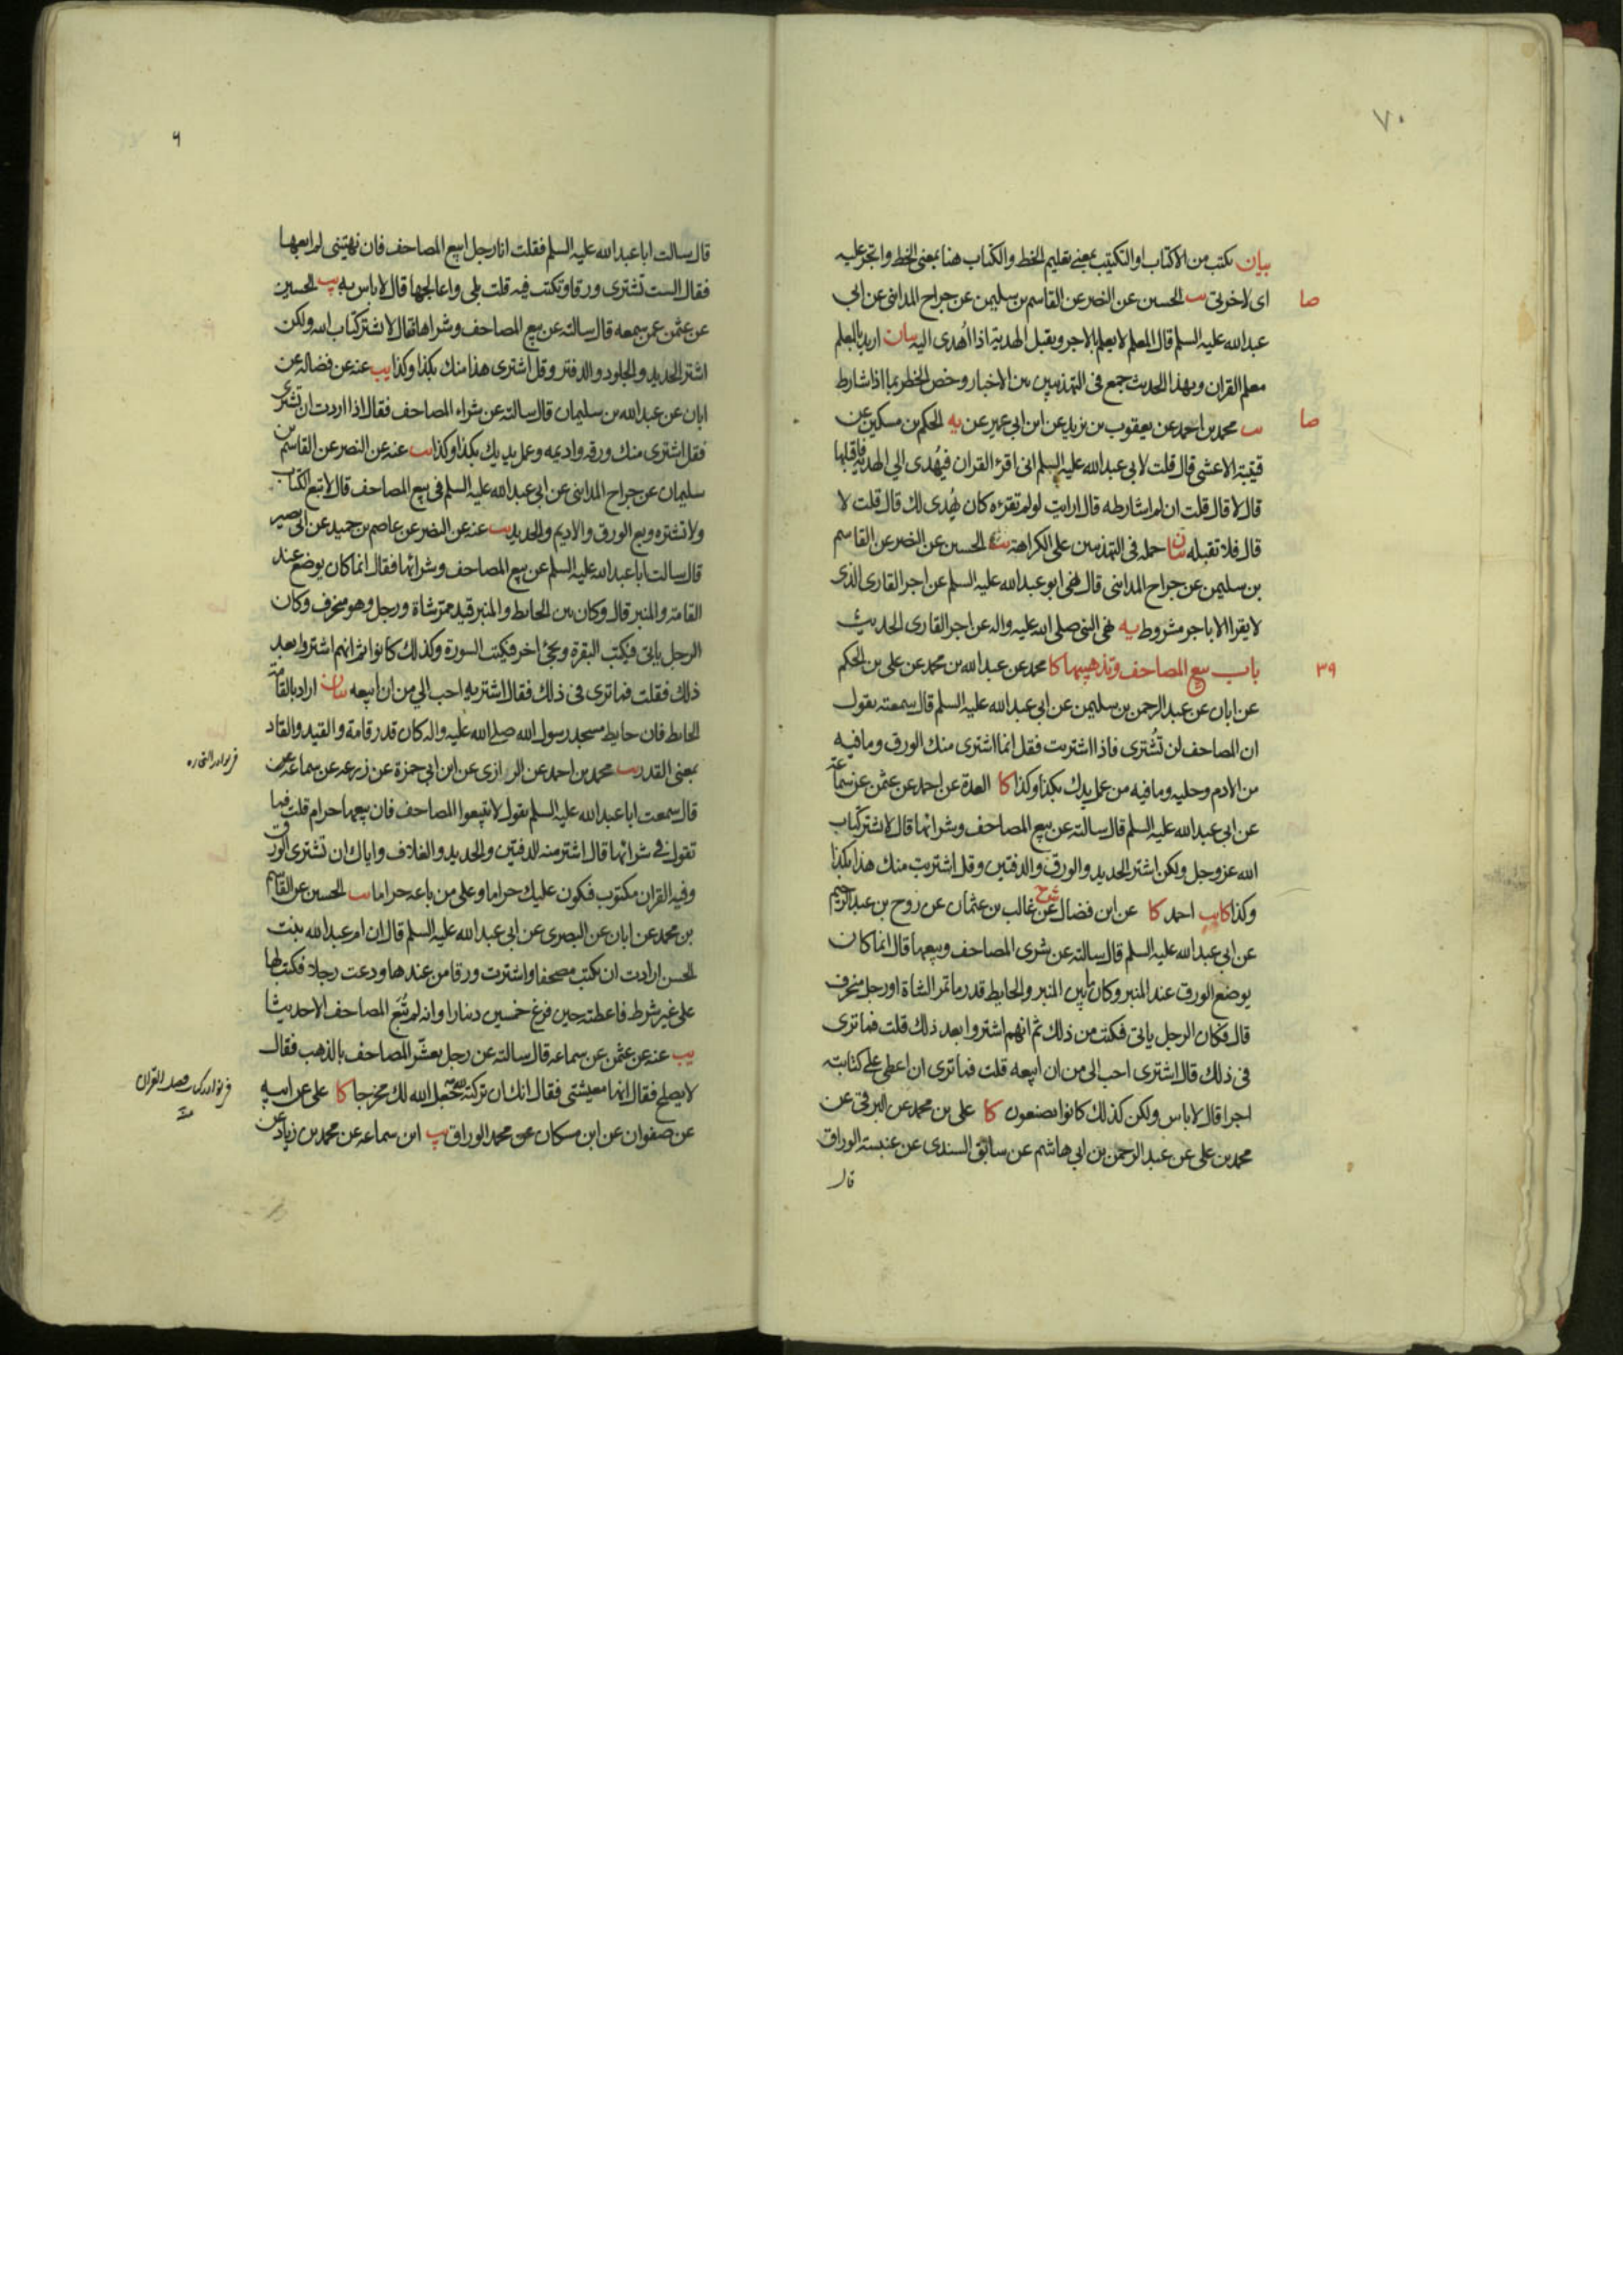 ٧٠
بيان يكتب من الاكتاب او التكتيب بمعنى تعليم الخط والكتاب هنا بمعنى الخط واتجر عليه
صا
اى لاخرتى يب الحسين عن النضر عن القاسم بن سليمن عن جراح المداينى عن ابى
عبد الله عليه السلم قال المعلم لا يعلم بالاجر ويقبل الهدية اذا اُهدى اليه بيان اريد بالمعلم
معلم القران وبهذا الحديث جمع فى التهذيبين بين الاخبار وخص الحظر بما اذا شارط
صا
يب محمد بن احمد عن يعقوب بن يزيد عن ابن ابى عمير عن يه الحكم بن مسكين عن
قتيبة الاعشى قال قلت لابى عبد الله عليه السلم انى اقرئ القران فيُهدى الى الهدية فاقبلها
قال لا قال قلت ان لم اشارطه قال ارايت لو لم تقرئه كان يُهدى لك قال قلت لا
قال فلا تقبله بيان حمله فى التهذيبين على الكراهة يب الحسين عن النضر عن القاسم
بن سليمن عن جراح المداينى قال نهى ابو عبد الله عليه السلم عن اجر القارى الذى
لا يقرا الا باجر مشروط يه نهى النبى صلى الله عليه واله عن اجر القارى الحديث
٣٩
باب بيع المصاحف وتذهيبها كا محمد عن عبد الله بن محمد عن على بن الحكم
عن ابان عن عبد الرحمن بن سليمن عن ابى عبد الله عليه السلم قال سمعته يقول
ان المصاحف لن تُشترى فاذا اشتريت فقل انما اشترى منك الورق وما فيه
من الادم وحليه وما فيه من عمل يدك بكذا وكذا كا العدة عن احمد عن عثمن عن سماعة
عن ابى عبد الله عليه السلم قال سالته عن بيع المصاحف وشرائها قال لا تشتر كتاب
الله عز وجل ولكن اشتر الحديد والورق والدفتين وقل اشتريت منك هذا بكذا
وكذا كا يب احمد كا عن ابن فضال ش ح عن غالب بن عثمان عن روح بن عبد الرحيم
عن ابى عبد الله عليه السلم قال سالته عن شرى المصاحف وبيعها قال انما كان
يوضع الورق عند المنبر وكان ما بين المنبر والحايط قدر ما تمر الشاة او رجل منحرف
قال فكان الرجل ياتى فكتب من ذلك ثم انهم اشتروا بعد ذلك قلت فما ترى
فى ذلك قال اشترى احب الى من ان ابيعه قلت فما ترى ان اعطى على كتابته
اجرا قال لا باس ولكن كذلك كانوا يصنعون كا على بن محمد عن البرقى عن
محمد بن على عن عبد الرحمن بن ابى هاشم عن سابق السندى عن عنبسة الوراق
قال
٩
قال سالت ابا عبد الله عليه السلم فقلت انا رجل ابيع المصاحف فان نهيتنى لم ابعها
فقال الست تشترى ورقا وتكتب فيه قلت بلى واعالجها قال لا باس به يب الحسين
عن عثمن عمن سمعه قال سالته عن بيع المصاحف وشراها فقال لا تشتر كتاب الله ولكن
اشتر الحديد والجلود والدفتر وقل اشترى هذا منك بكذا وكذا يب عنه عن فضالة عن
ابان عن عبد الله بن سليمان قال سالته عن شراء المصاحف فقال اذا اردت ان تشترى
فقل اشترى منك ورقه واديمه وعمل يديك بكذا وكذا يب عنه عن النضر عن القاسم بن
سليمان عن جراح المداينى عن ابى عبد الله عليه السلم فى بيع المصاحف قال لا تبع الكتاب
ولا تشتره وبع الورق والاديم والحديد يب عنه عن النضر عن عاصم بن حميد عن ابى بصير
قال سالت ابا عبد الله عليه السلم عن بيع المصاحف وشرائها فقال انما كان يوضع عند
القامة والمنبر قال وكان بين الحايط والمنبر قيد ممر شاة ورجل وهو منحرف وكان
الرجل ياتى فيكتب البقرة ويجئ اخر فيكتب السورة وكذلك كانوا ثم انهم اشتروا بعد
ذلك فقلت فما ترى فى ذلك فقال اشتريه احب الى من ان ابيعه بيان اراد بالقامة
الحايط فان حايط مسجد رسول الله صلى الله عليه واله كان قدر قامة والقيد والقاد
بمعنى القدر يب محمد بن احمد عن الرازى عن ابن ابى حمزة عن زرعه عن سماعه
قال سمعت ابا عبد الله عليه السلم يقول لا تبيعوا المصاحف فان بيعها حرام قلت فما
تقول فى شرائها قال اشتر منه الدفتين والحديد والغلاف واياك ان تشترى الورق
وفيه القران مكتوب فيكون عليك حراما وعلى من باعه حراما يب الحسين عن القاسم
بن محمد عن ابان عن البصرى عن ابى عبد الله عليه السلم قال ان ام عبد الله بنت
الحسن ارادت ان تكتب مصحفا واشترت ورقا من عندها ودعت رجلا فكتب لها
على غير شرط فاعطته حين فرغ خمسين دينارا وانه لم تُبَع المصاحف الا حديثا
يب عنه عن عثمن عن سماعه قال سالته عن رجل يعشّر المصاحف بالذهب فقال
لا يصلح فقال انها معيشتى فقال انك ان تركته لله جعل الله لك مخرجا كا على عن ابيه
عن صفوان عن ابن مسكان عن محمد الوراق يب ابن سماعه عن محمد بن زياد عن